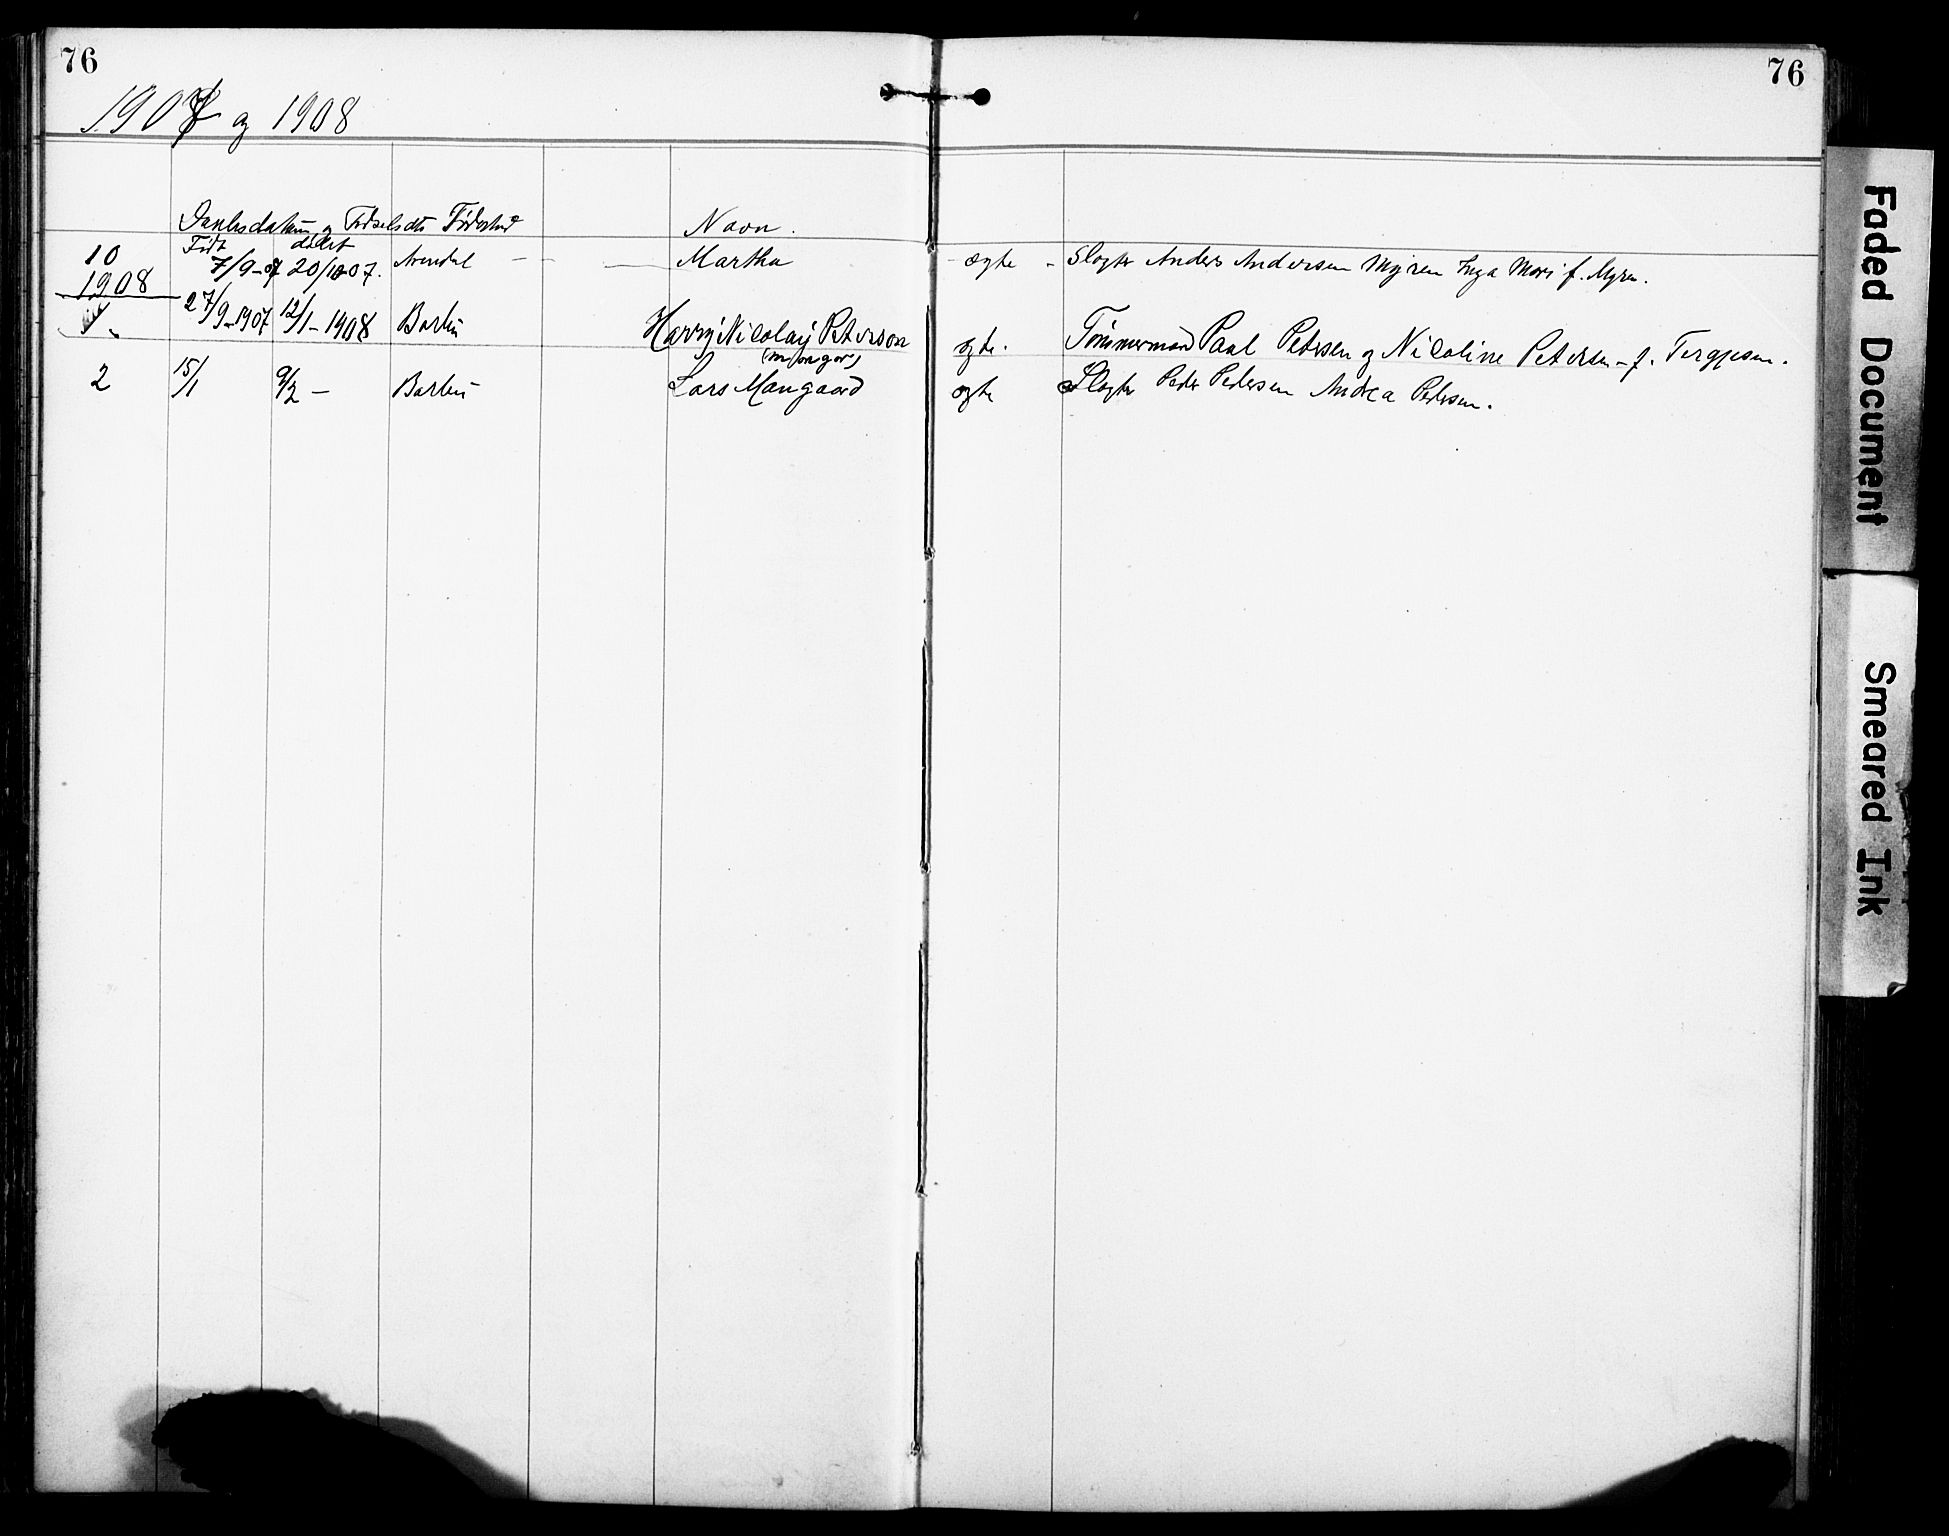 76 76
1907 og 1908
Daabsdatum og Fødselsdts Fødested Navn.
Født døbt
10 7/9-07 20/10-07. Arendal - - Martha ægte - Slagter Anders Andersen Myren Inga Marie f. Myren.
1908
1. 27/9-1907 12/1-1908 Barbu Harry Nicolaij Peterson ægte. Tømmermand Paal Petersen og Nicoline Petersen - f. Tergjesen.
2 15/1 9/2 - Barbu Lars Mangaard ægte Slagter Peder Pedersen Andrea Pedersen.
Faded Document
Smeared Ink